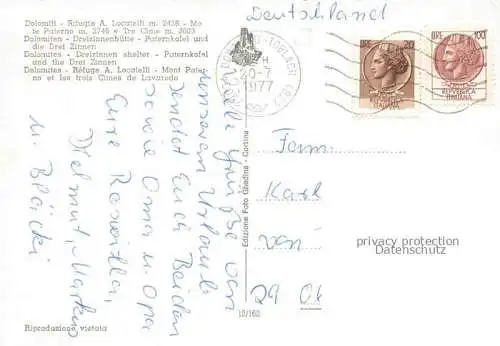 Deutschland
Dolomiti - Rifugio A. Locatelli m. 2438 - Mo
te Paterno m. 2746 e Tre Cime m. 3003
Dolomiten - Dreizinnenhütte - Paternkofel und
die Drei Zinnen
Dolomites - Dreizinnen shelter - Paternkofel
and the Drei Zinnen
Dolomites - Réfuge A. Locatelli - Mont Pater-
no et les trois Cimes de Lavaredo
TOBLACH
20-7
1977
20
LIRE 100
REPVBBLICA
ITALIANA
Viele Grüße von
unserem Urlaub
sendet Euch Beiden
sowie Oma u. Opa
Eure Roswitha,
Helmut, Markus
u. Bläcki
Edizione Foto Ghedina - Cortina
Fam.
Karl
van
29 Ol
privacy protection
Datenschutz
Riproduzione vietata
12/162